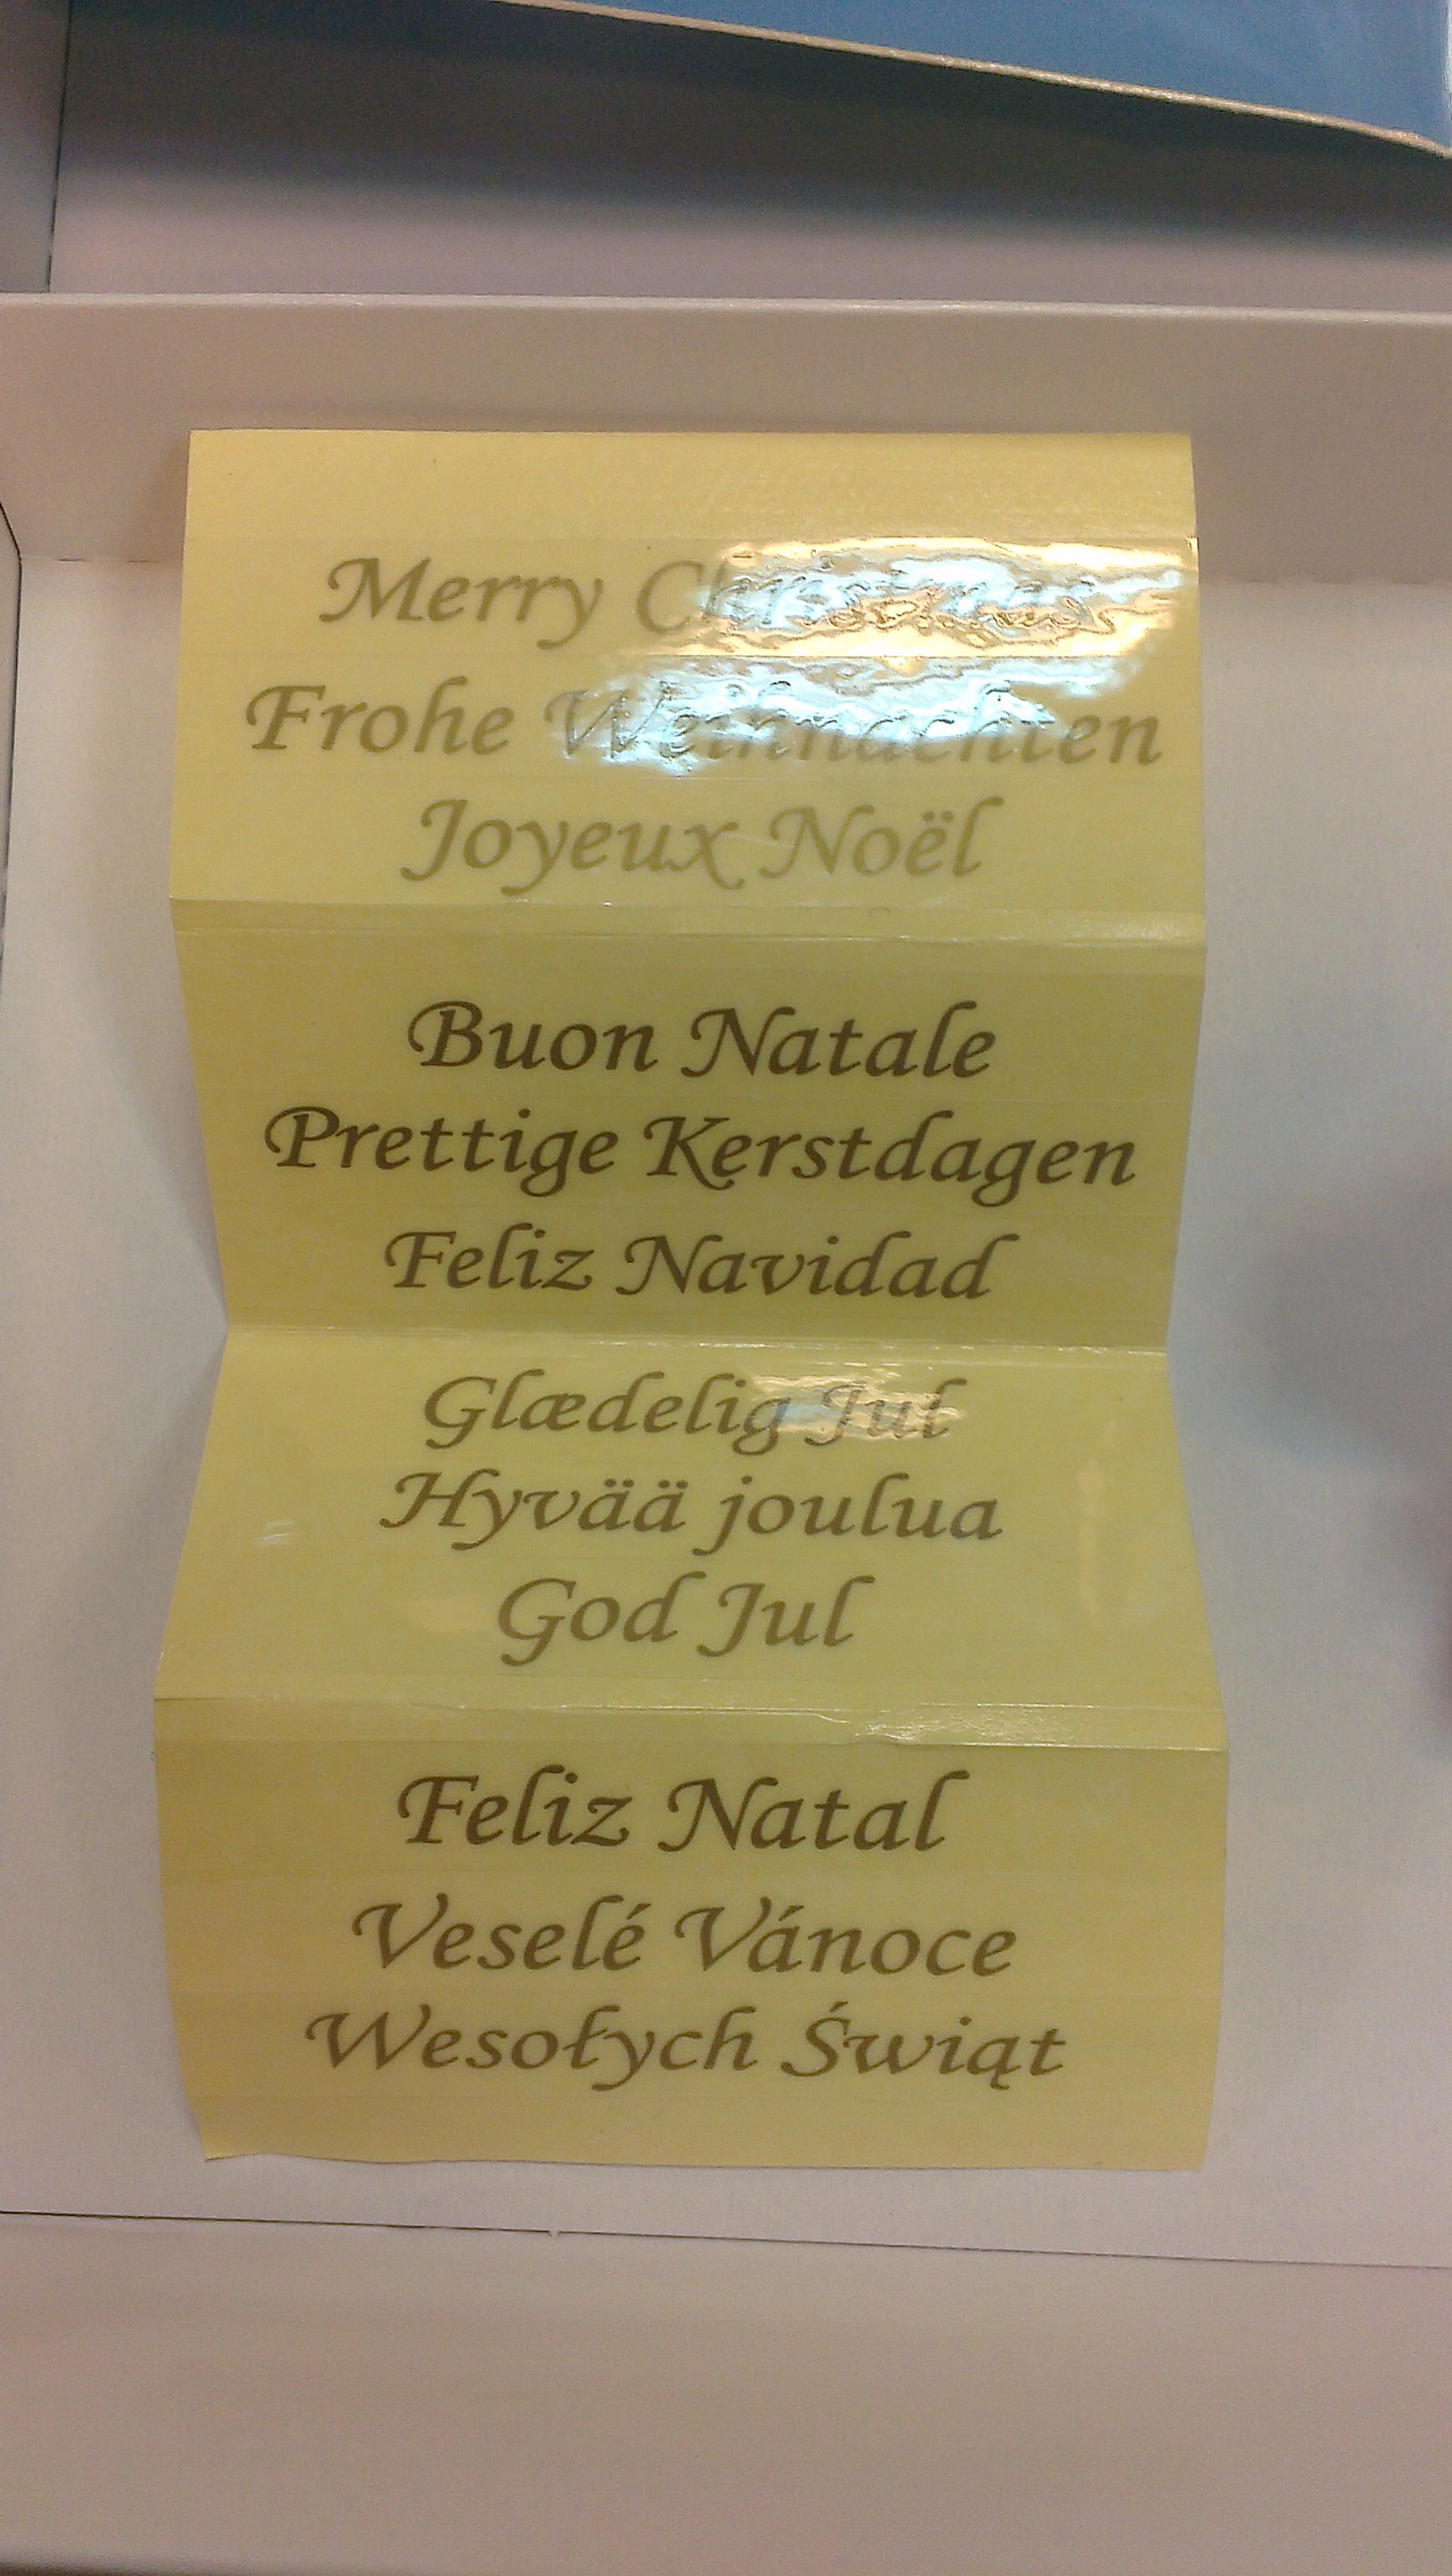 Merry Christmas
Frohe Weihnachten
Joyeux Noël
Buon Natale
Prettige Kerstdagen
Feliz Navidad
Glædelig Jul
Hyvää joulua
God Jul
Feliz Natal
Veselé Vánoce
Wesołych Świąt